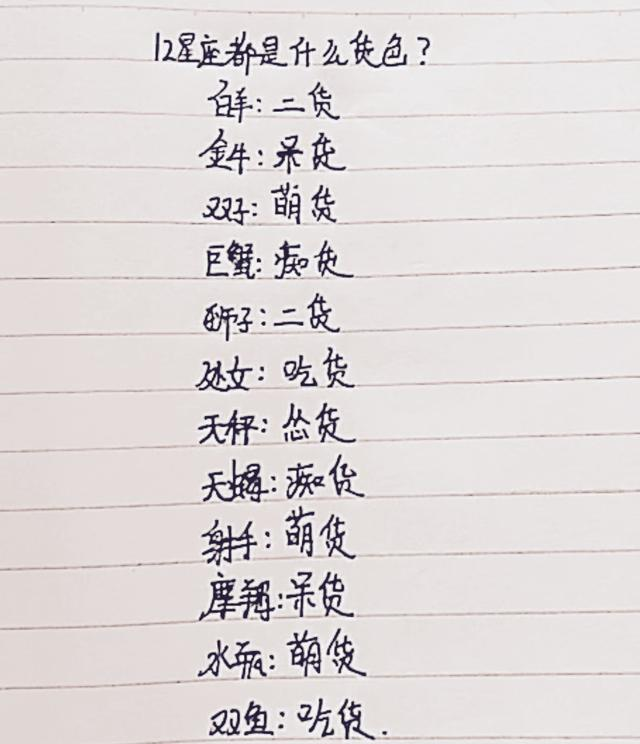 12星座都是什么货色？
白羊：二货
金牛：呆货
双子：萌货
巨蟹：痴货
狮子：二货
处女：吃货
天秤：怂货
天蝎：痴货
射手：萌货
摩羯：呆货
水瓶：萌货
双鱼：吃货.